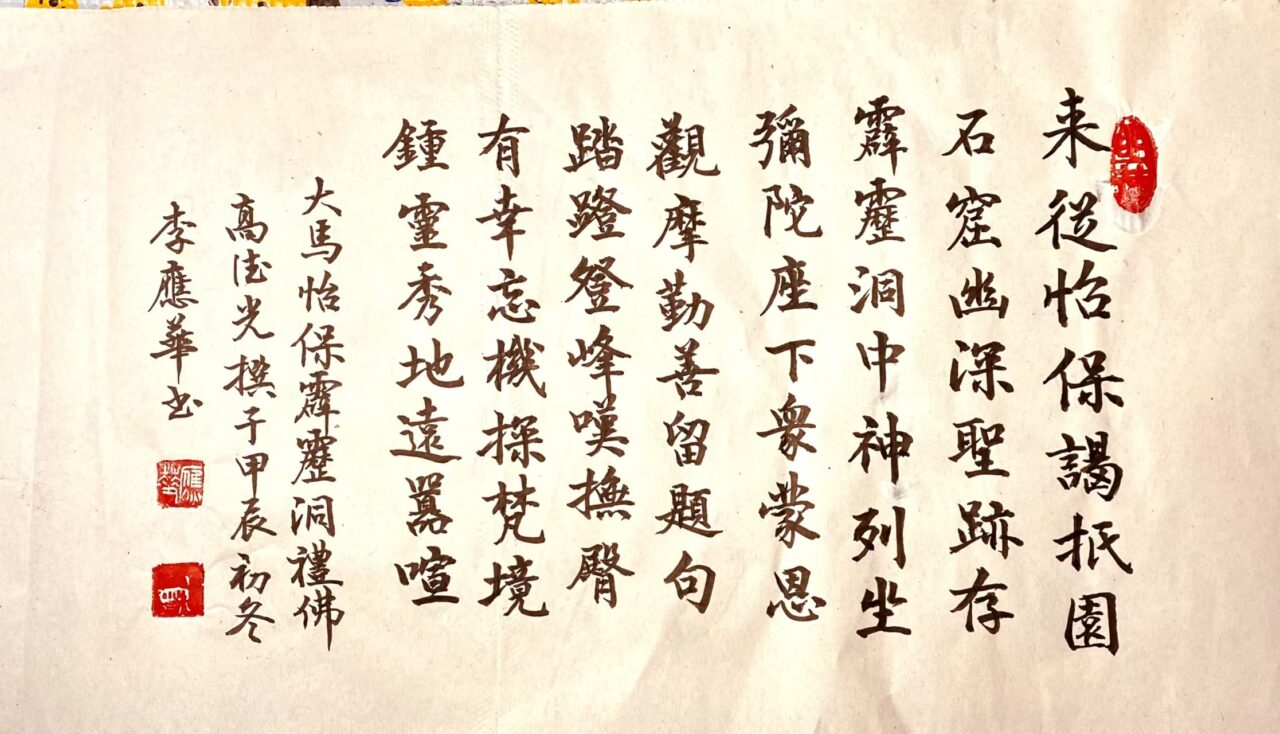 来從怡保謁抵園
石窟幽深聖跡存
霹靂洞中神列坐
彌陀座下衆蒙恩
觀摩勤善留題句
踏蹬登峰嘆撫臀
有幸忘機探梵境
鍾靈秀地遠囂喧
大馬怡保霹靂洞禮佛
高德光撰于甲辰初冬
李應華书
應華